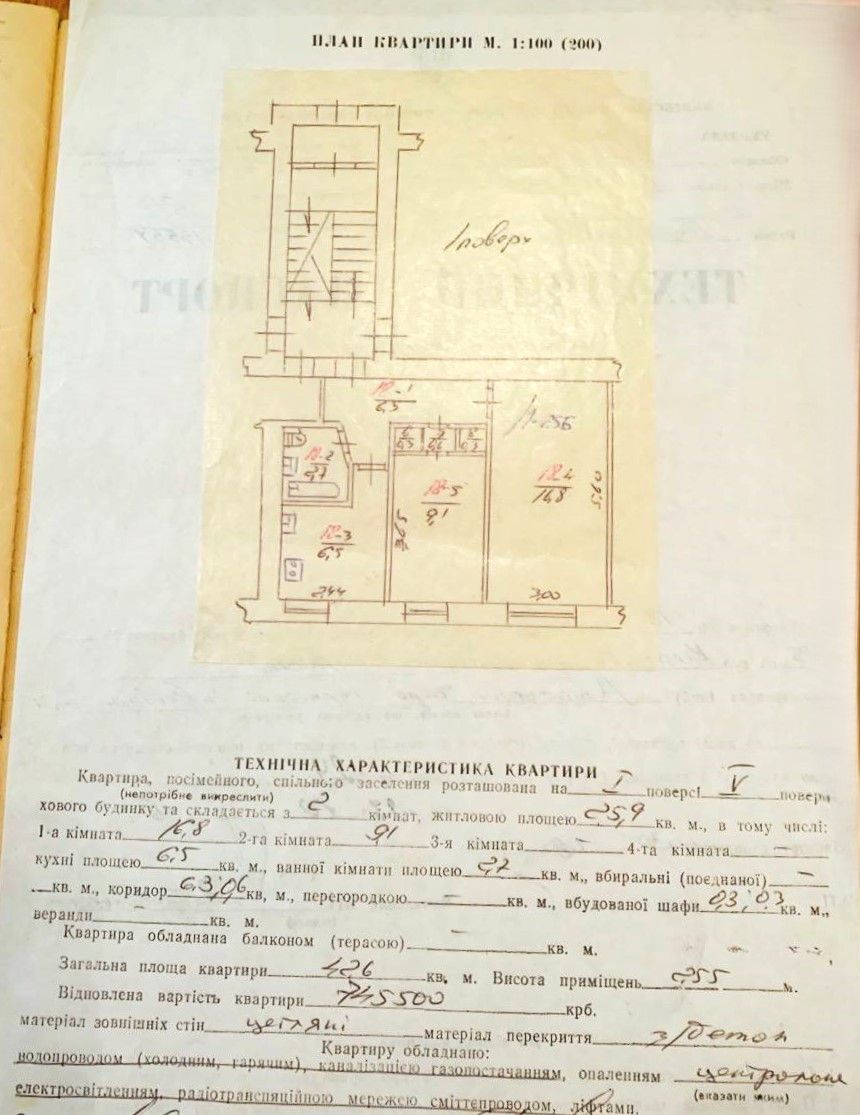 ПЛАН КВАРТИРИ М. 1:100 (200)
1 поверх
12-1
6,5
12-2
2,7
12-3
6,5
2,44
6
0,3
7
0,6
8
0,3
12-5
9,1
5,63
h-2,55
12-4
16,8
5,60
3,00
ТЕХНІЧНА ХАРАКТЕРИСТИКА КВАРТИРИ
Квартира, посімейного, спільного заселення розташована на I поверсі V поверх
(непотрібне викреслити)
хового будинку та складається з 2 кімнат, житловою площею 25,9 кв. м., в тому числі:
1-а кімната 16,8 2-га кімната 9,1 3-я кімната – 4-та кімната –
кухні площею 6,5 кв. м., ванної кімнати площею 2,7 кв. м., вбиральні (поєднаної) –
кв. м., коридор 6,3; 0,6 кв, м., перегородкою – кв. м., вбудованої шафи 0,3; 0,3 кв. м.,
веранди – кв. м.
Квартира обладнана балконом (терасою) – кв. м.
Загальна площа квартири 42,6 кв. м. Висота приміщень 2,55 м.
Відновлена вартість квартири 745500 крб.
матеріал зовнішніх стін цегляні матеріал перекриття з/бетон
Квартиру обладнано:
водопроводом (холодним, гарячим), каналізацією газопостачанням, опаленням центральне
електросвітленням, радіотрансляційною мережею сміттєпроводом, ліфтами. (вказати яким)